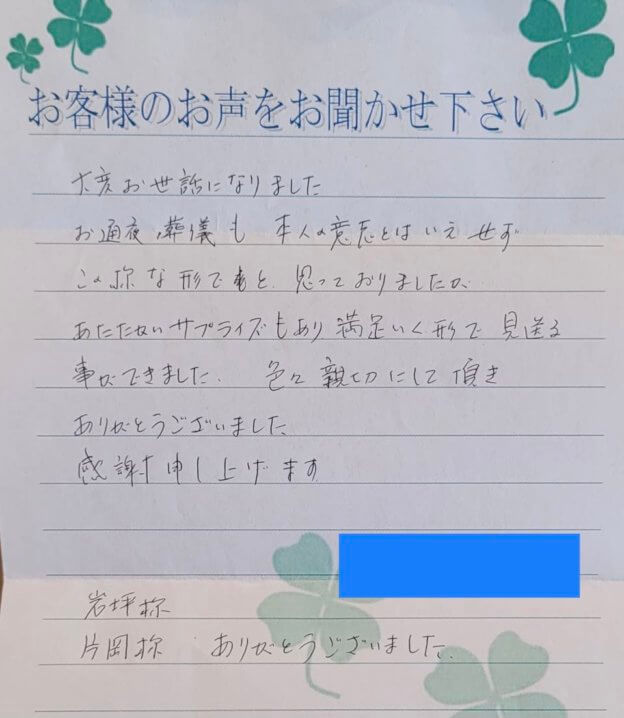 お客様のお声をお聞かせ下さい
大変お世話になりました
お通夜、葬儀も 本人の意志とはいえ せず
この様な形でもと、思っておりましたが、
あたたかいサプライズもあり 満足いく形で 見送る
事ができました。 色々 親切にして 頂き
ありがとうございました
感謝申し上げます
岩坪様
片岡様 ありがとうございました。